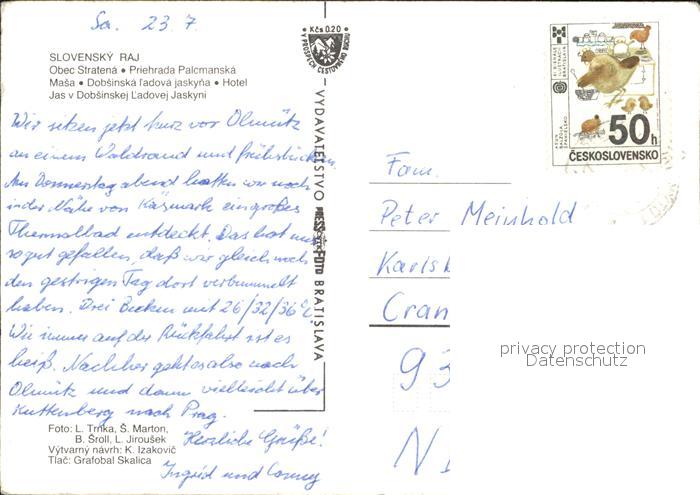 Sa. 23.7
SLOVENSKÝ RAJ
Obec Stratená • Priehrada Palcmanská
Maša • Dobšinská ľadová jaskyňa • Hotel
Jas v Dobšinskej Ľadovej Jaskyni
Wir sitzen jetzt kurz vor Olmütz
an einem Waldrand und frühstücken.
Am Donnerstag abend hatten wir noch
in der Nähe von Käsmark ein großes
Thermalbad entdeckt. Das hat uns
so gut gefallen, daß wir gleich noch
den gestrigen Tag dort verbummelt
haben. Drei Becken mit 26/32/36°C.
Wie immer auf der Rückfahrt ist es
heiß. Nachher geht es also nach
Olmütz und dann vielleicht über
Kuttenberg nach Prag.
Herzliche Grüße!
Ingrid und Conny
Foto: L. Trnka, Š. Marton,
B. Šroll, L. Jiroušek
Výtvarný návrh: K. Izakovič
Tlač: Grafobal Skalica
Kčs 0.20
V PROSPECH CESTOVNÉHO RUCHU
VYDAVATEĽSTVO PRESSFOTO BRATISLAVA
50h
ČESKOSLOVENSKO
Fam.
Peter Meinhold
Karls
Cran
93
N
privacy protection
Datenschutz